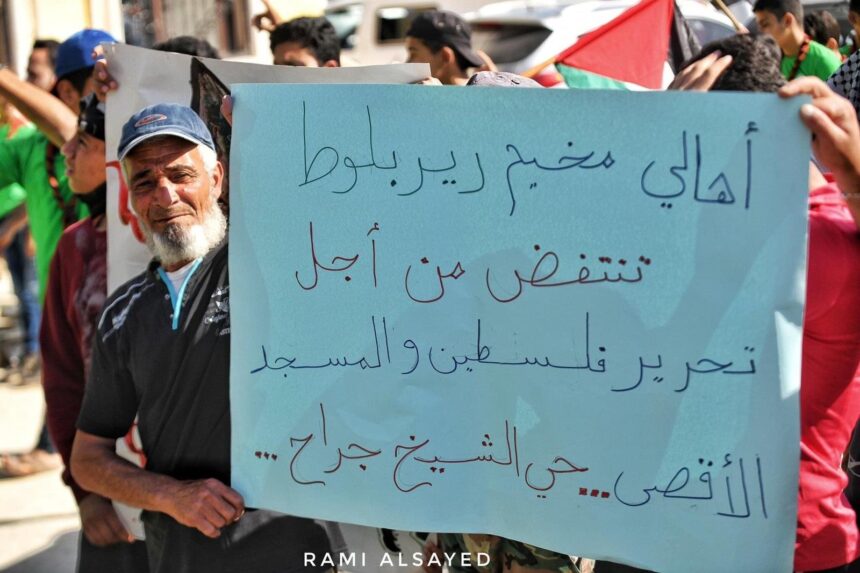 أهالي مخيم ريربلوط
تنتفض من أجل
تحرير فلسطين والمسجد
الأقصى...حي الشيخ جراح...
RAMI ALSAYED